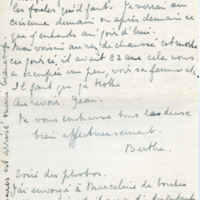 les foules qu'il faut. Je verrai au
cinéma demain ou après demain ce
que j'entends aujourd'hui.
Mon voisin au rez de chaussée est mort
ces jours-ci, il avait 82 ans cela nous
a occupés un peu, voir se fermer
Il faut que je
Au revoir, Jean.
Je vous embrasse tous les deux
bien affectueusement.
Berthe.
Voici des photos.
J'ai envoyé à Marceline de toutes
est arrivé beaucoup